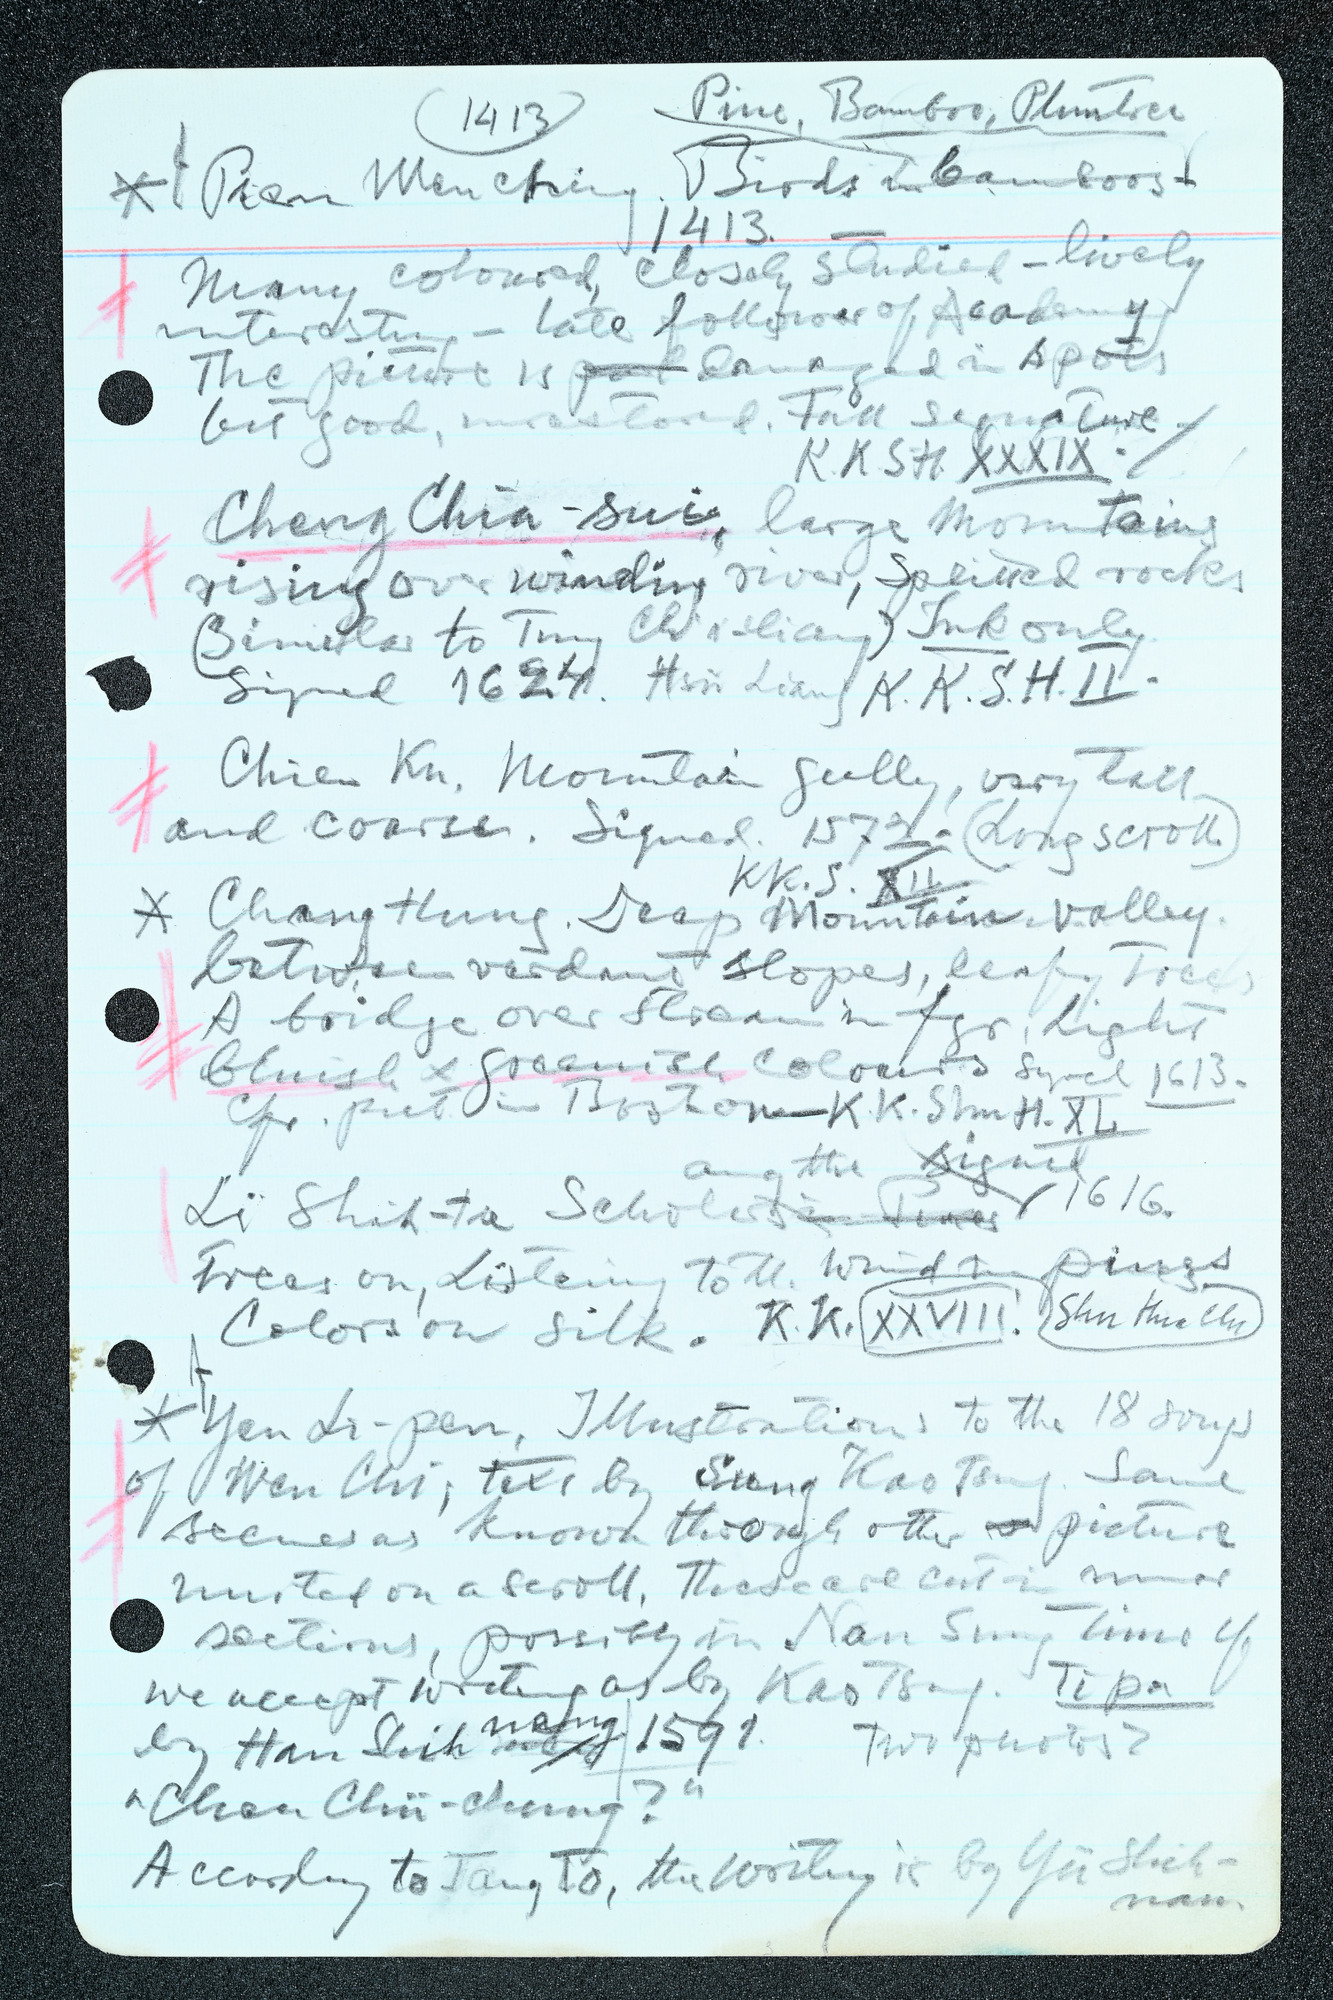 (1413) Pine, Bamboo, Plumtree
* Pien Wen ching. Birds in bamboos -
1413.
Many coloured, closely studied - lively
interesting - late follower of Academy
The picture is damaged in spots
but good, unrestored. Full signature.
K.K.S.H. XXXIX. /
Cheng Chia-sui, large Mountains
rising over winding river, Spirited rocks
(Similar to Tung Ch'i-ch'ang) Ink only.
Signed 1624. Hsü Liang K.K.S.H. II.
Chien Ku. Mountain gully, very tall
and coarse. Signed. 1572. (Long scroll)
KK.S. XII
* Chang Hung. Deep Mountain valley.
between verdant slopes, leafy Trees
A bridge over Stream in fgr. Light
bluish & greenish Colours Signed 1613.
Cfr. pict in Boston - K.K. Shu H. XL
among the Signed
Li Shih-ta Scholars in Pines 1616.
Trees on, Listening to th. Wind in pines
Colors on Silk. K.K. XXVIII. (Shu Hua Chi)
* Yen Li-pen, Illustrations to the 18 songs
of Wen Chi; text by Sung Kao Tsung. Same
scenes as known through other picture
united on a scroll, These are cut in
sections, possibly in Nan Sung Time if
we accept writing as by Kao Tsung. Ti pa
by Han Shih neng 1591. Two photos?
"Chen Chü-chung?"
According to Tang To, the writing is by Yü Shih-
nan.